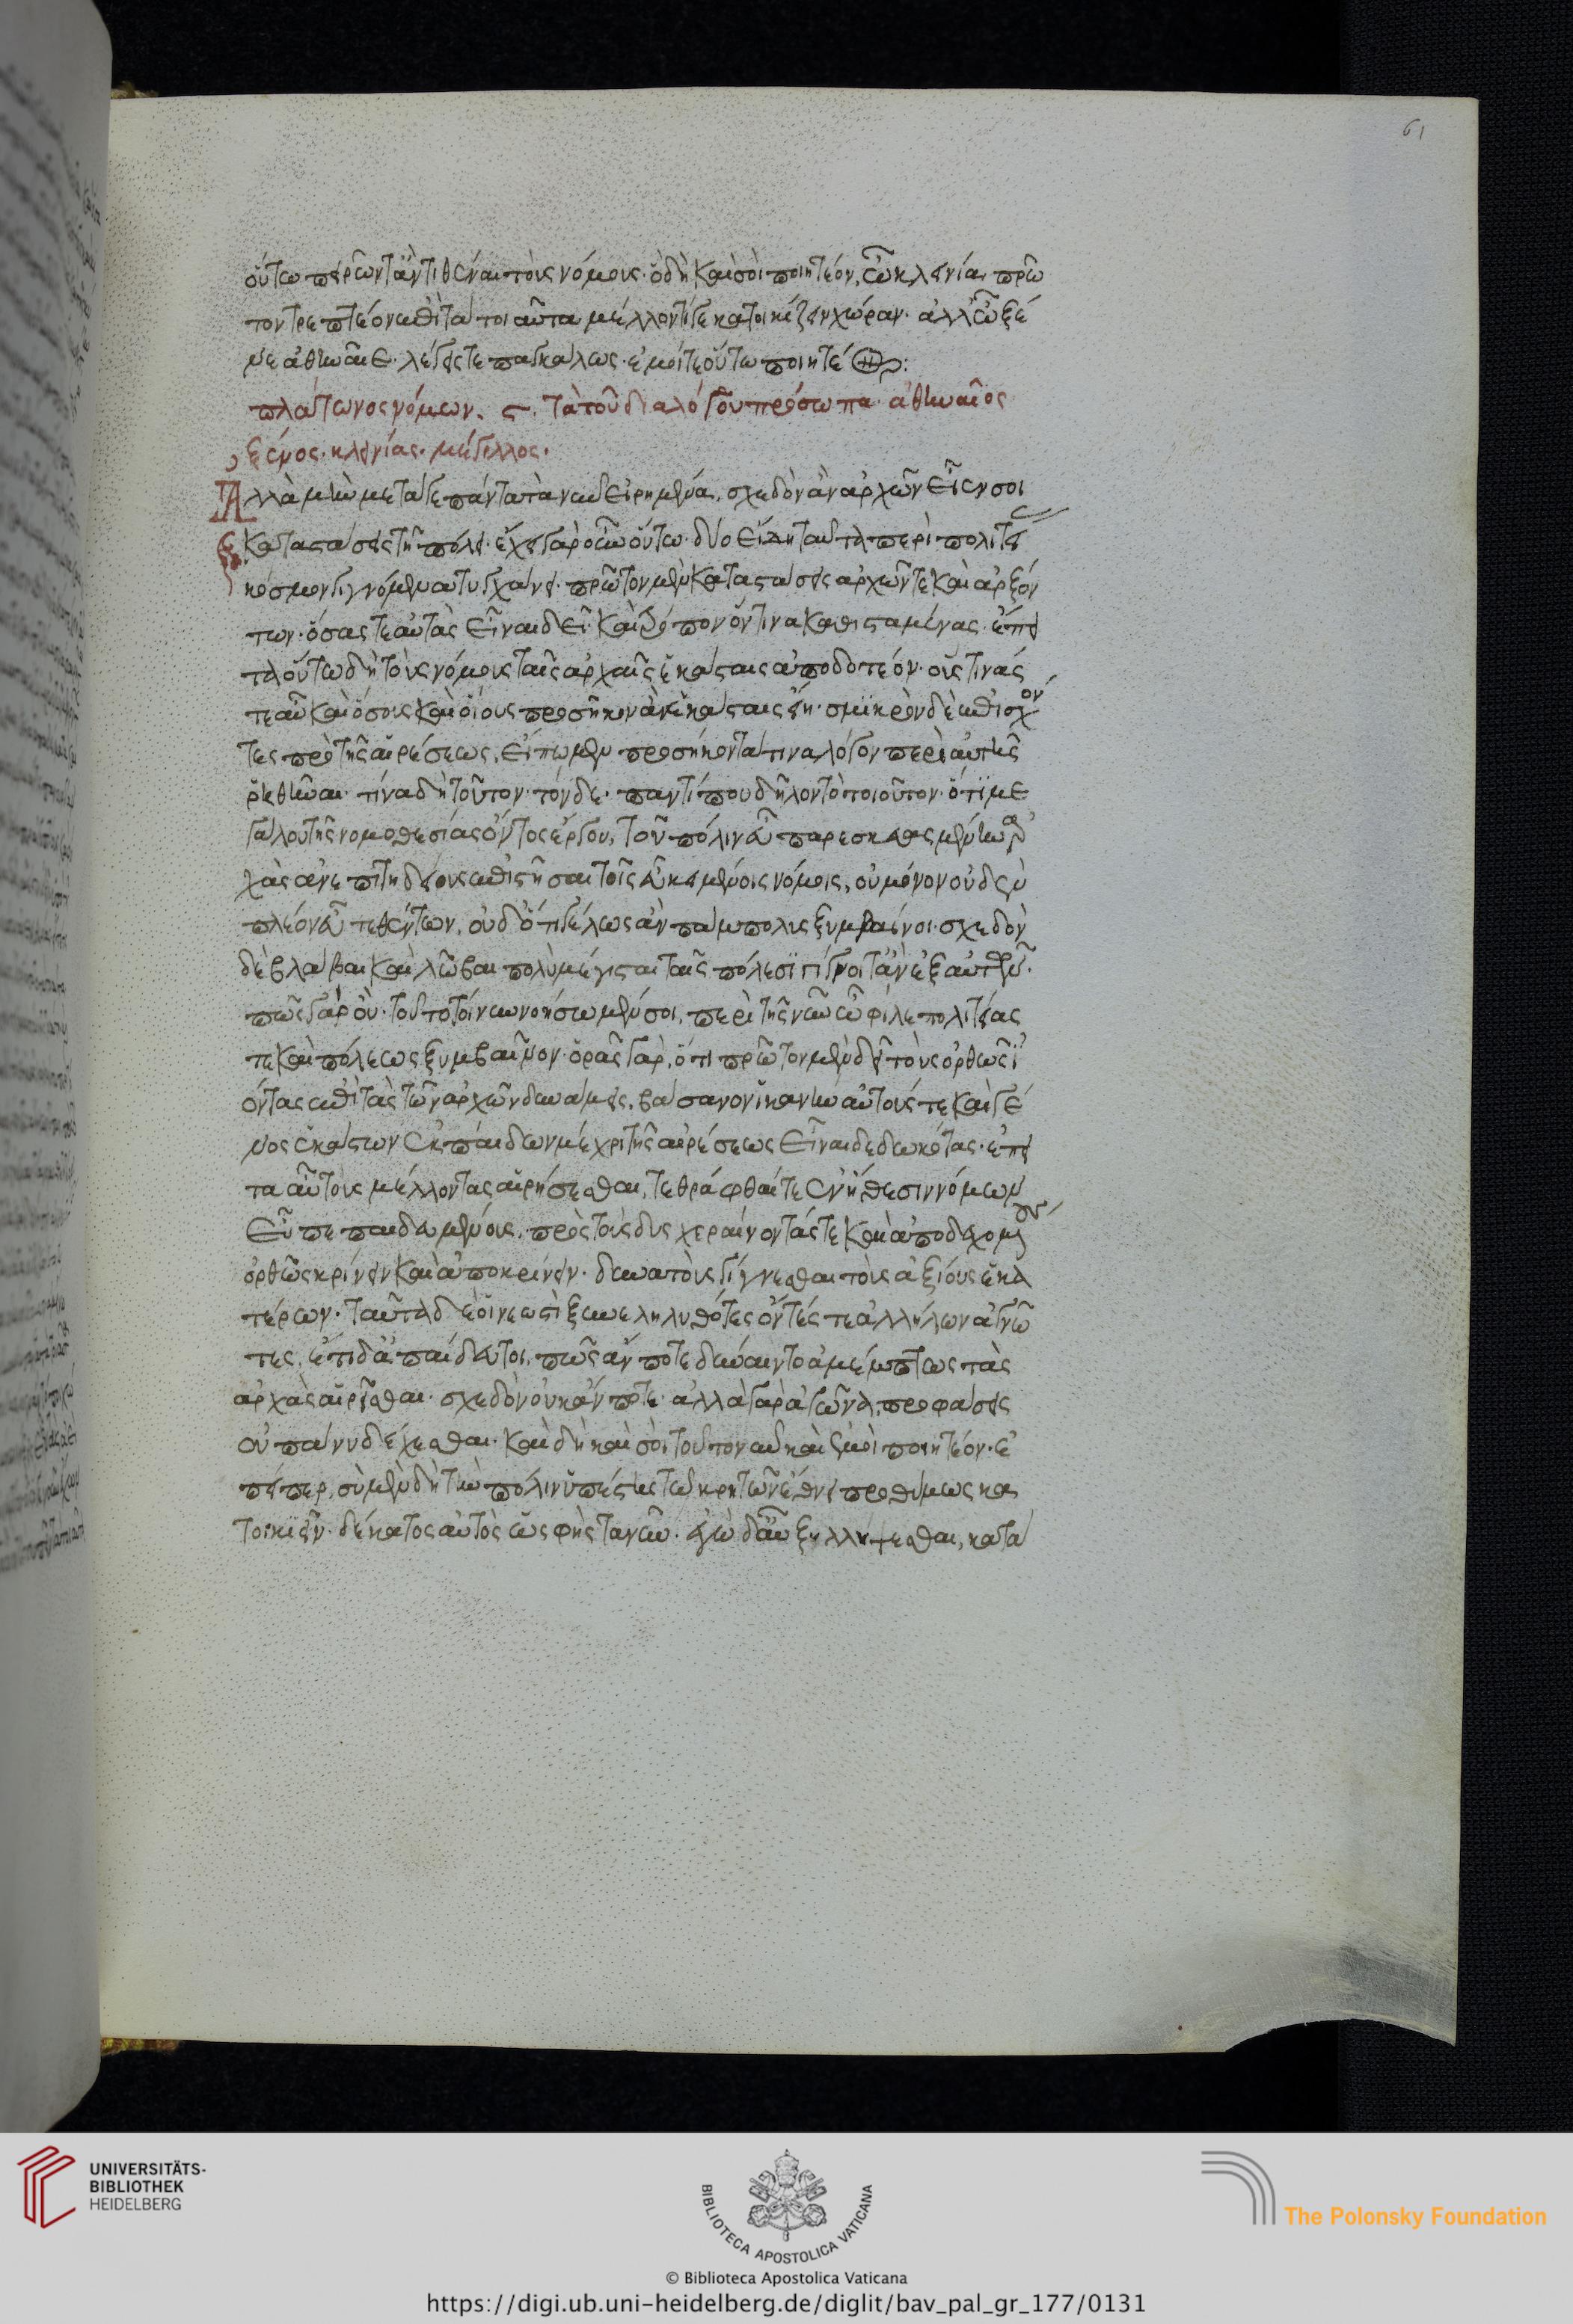 61
οὕτω πειρῶντ' ἂν τιθέναι τοὺς νόμους. ὃ δὴ καὶ σοὶ ποιητέον, ὦ κλεινία, πρῶ
τον τρεπτέον ἐπὶ τὰ τοιαῦτα μέλλοντί γε κατοικίζειν χώραν. ἀλλ' ὦ ξέ
νε ἀθηναῖε. λέγεις τε παγκάλως. ἐμοί τε οὕτω ποιητέον:
πλάτωνος νόμων. ϛ. τὰ τοῦ διαλόγου πρόσωπα ἀθηναῖος
ξένος. κλεινίας. μέγιλλος.
Ἀλλὰ μὴν μετά γε πάντα τὰ νῦν εἰρημένα, σχεδὸν ἂν ἀρχῶν εἶεν σοι
καταστάσεις τῇ πόλει. ἔχει γὰρ οὖν οὕτω. δύο εἴδη ταῦτα περὶ πολιτεί
κόσμον γιγνόμενα τυγχάνει. πρῶτον μὲν καταστάσεις ἀρχῶν τε καὶ ἀρξόν
των. ὅσας τε αὐτὰς εἶναι δεῖ καὶ τρόπον ὅντινα καθισταμένας. ἔπει
τα οὕτω δὴ τοὺς νόμους ταῖς ἀρχαῖς ἑκάσταις ἀποδοτέον. οὕς τινάς
τε αὖ καὶ ὅσους καὶ οἵους προσῆκον ἂν ἑκάσταις εἴη. σμικρὸν δὲ ἐπισχόν
τες πρὸ τῆς αἱρέσεως, εἴπωμεν προσήκοντά τινα λόγον περὶ αὐτῆς
ῥηθῆναι. τίνα δὴ τοῦτον. τόνδε. παντί που δῆλον τὸ τοιοῦτον. ὅτι με
γάλου τῆς νομοθεσίας ὄντος ἔργου, τοῦ πόλιν εὖ παρεσκευασμένην ἀρ
χὰς ἀνεπιτηδείους ἐπιστῆσαι τοῖς εὖ κειμένοις νόμοις, οὐ μόνον οὐδὲν
πλέον εὖ τεθέντων, οὐδ' ὅτι γέλως ἂν πάμπολυς ξυμβαίνοι. σχεδὸν
δὲ βλάβαι καὶ λῶβαι πολὺ μέγισται ταῖς πόλεσι γίγνοιτ' ἂν ἐξ αὐτῶν.
πῶς γὰρ οὔ. τοῦτο τοίνυν νοήσωμέν σοι, περὶ τῆς νῦν ὦ φίλε πολιτείας
τε καὶ πόλεως ξυμβαῖνον. ὁρᾷς γὰρ, ὅτι πρῶτον μὲν δεῖ τοὺς ὀρθῶς ἰ
όντας ἐπὶ τὰς τῶν ἀρχῶν δυνάμεις, βάσανον ἱκανὴν αὐτούς τε καὶ γέ
νος ἑκάστων ἐκ παίδων μέχρι τῆς αἱρέσεως εἶναι δεδωκότας. ἔπει
τα αὖ τοὺς μέλλοντας αἱρήσεσθαι, τεθράφθαι τε ἐν ἤθεσιν νόμων
εὖ πεπαιδευμένους, πρὸς τὸ δυσχεραίνοντάς τε καὶ ἀποδεχομένους
ὀρθῶς κρίνειν καὶ ἀποκρίνειν. δυνατοὺς γίγνεσθαι τοὺς ἀξίους ἑκα
τέρων. ταῦτα δὲ οἱ νεωστὶ ξυνεληλυθότες ὄντές τε ἀλλήλων ἀγνῶ
τες, ἔτι δ' ἀπαίδευτοι, πῶς ἄν ποτε δύναιντο ἀμέμπτως τὰς
ἀρχὰς αἱρεῖσθαι. σχεδὸν οὐκ ἄν ποτε. ἀλλὰ γὰρ ἀγῶνα, προφάσεις
οὐ πάνυ δέχεσθαι. καὶ δὴ καὶ σοὶ τοῦτο νῦν καὶ ἐμοὶ ποιητέον. ἐ
πείπερ, σὺ μὲν δὴ τὴν πόλιν ὑπέστης τῷ κρητῶν ἔθνει προθύμως κα
τοικιεῖν. δέκατος αὐτὸς ὡς φῂς τανῦν. ἐγὼ δ' αὖ ξυλλήψεσθαι, κατὰ
UNIVERSITÄTS-
BIBLIOTHEK
HEIDELBERG
BIBLIOTECA APOSTOLICA VATICANA
The Polonsky Foundation
© Biblioteca Apostolica Vaticana
https://digi.ub.uni-heidelberg.de/diglit/bav_pal_gr_177/0131